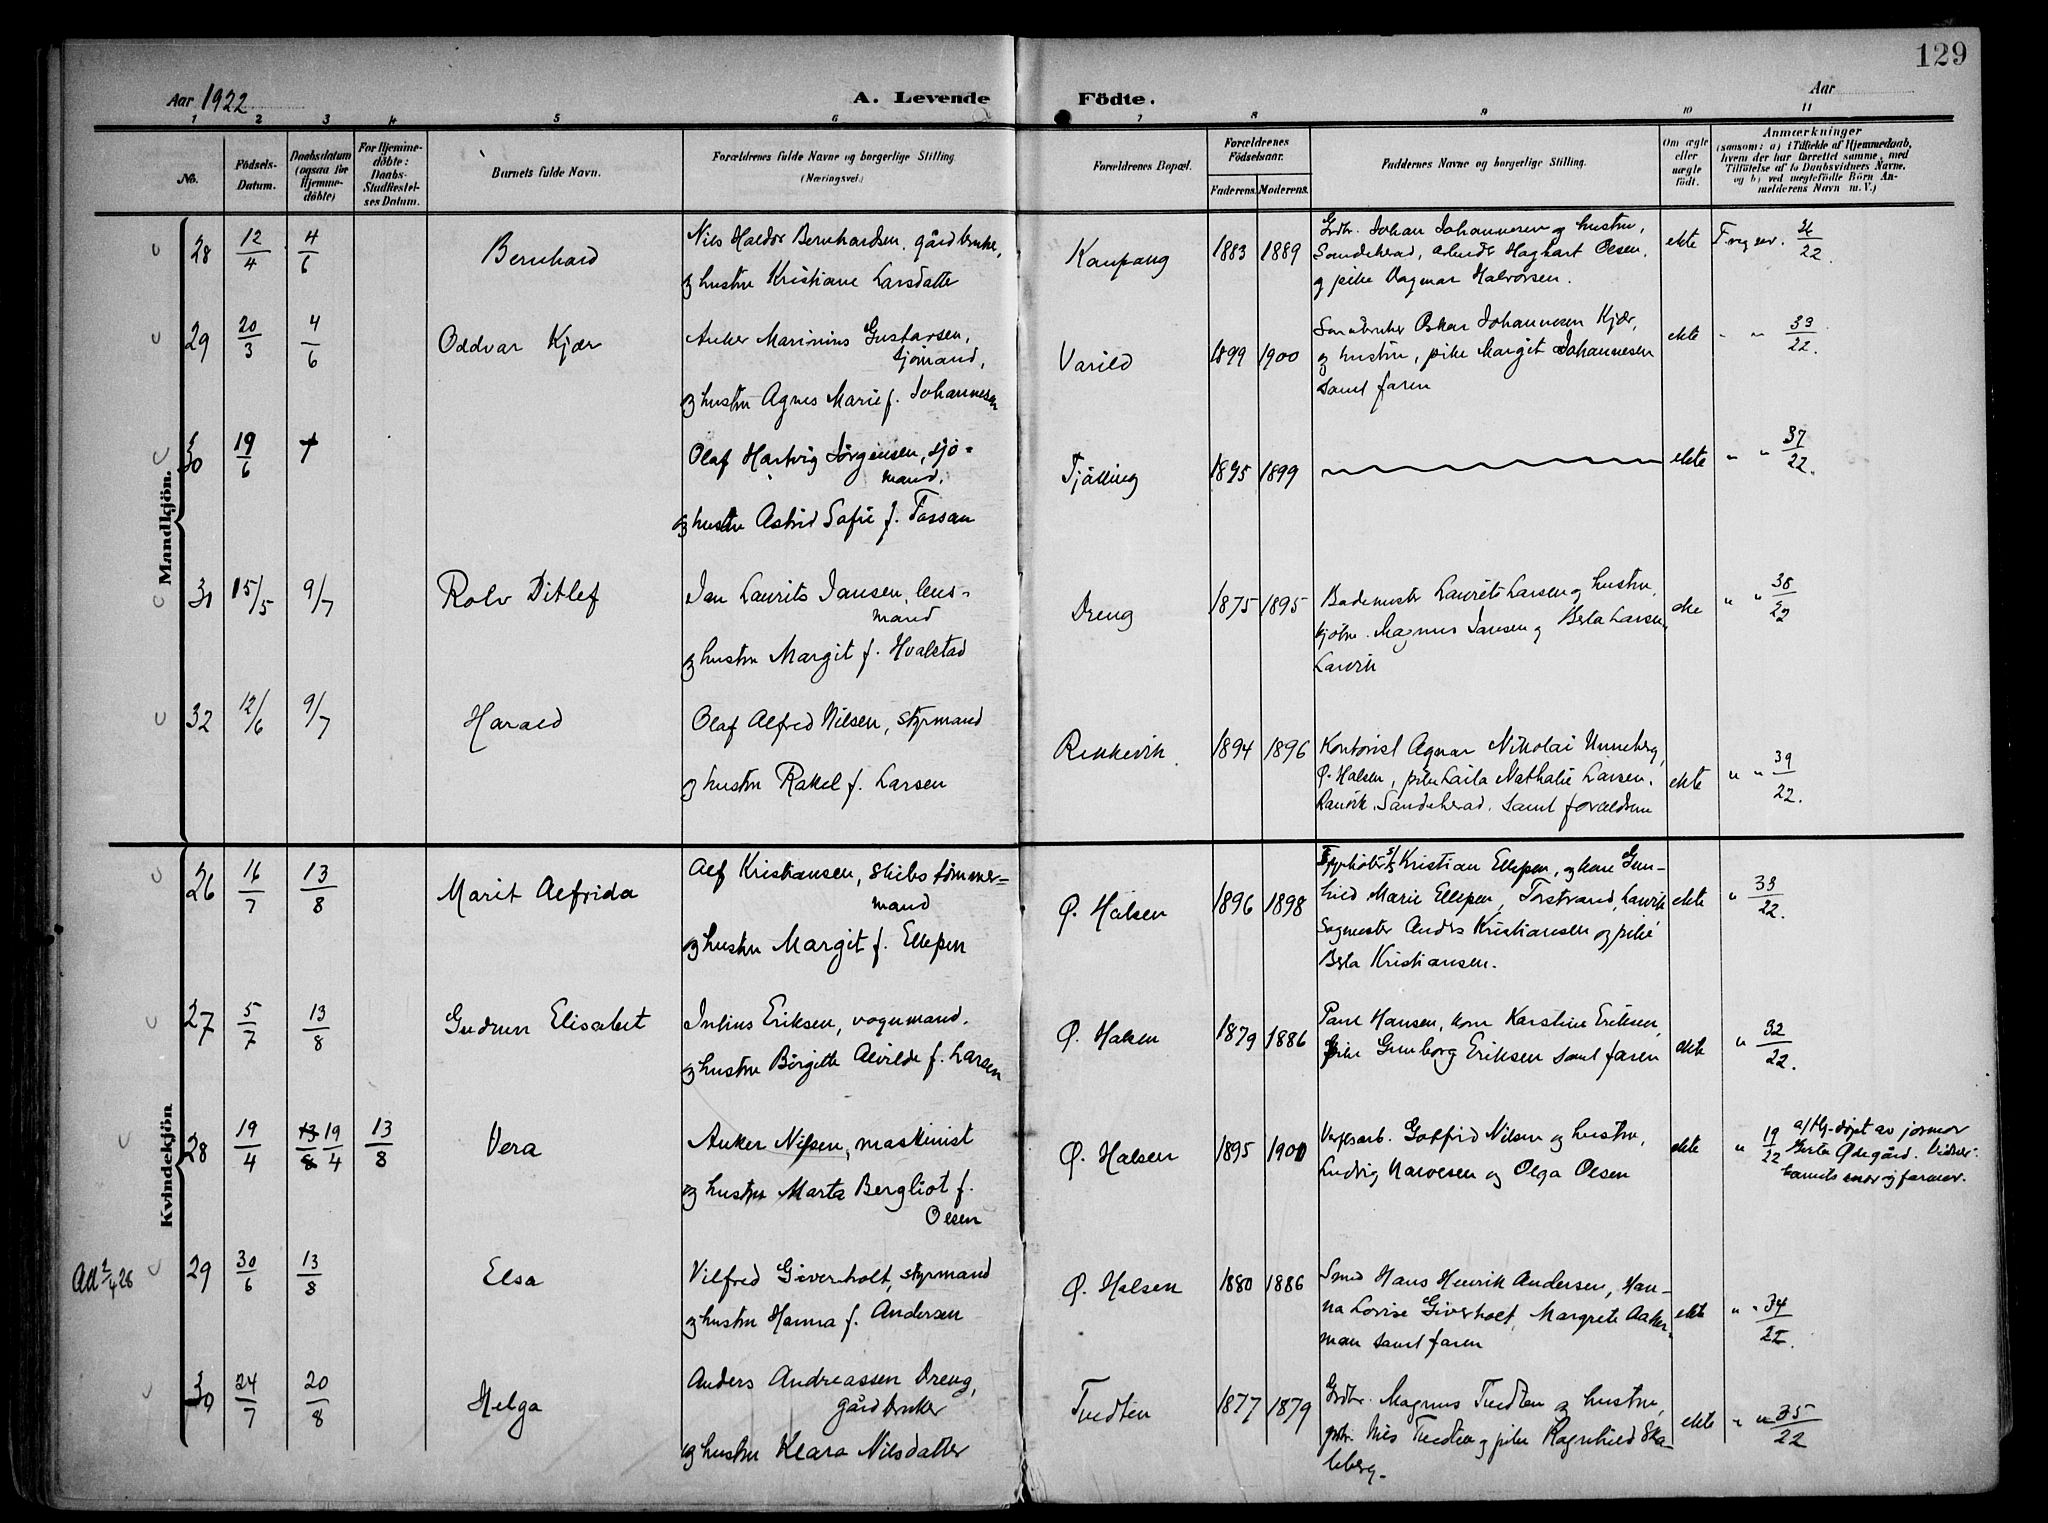 129
Aar 1922
A. Levende Födte.
Aar
1 2 3 4 5 6 7 8 9 10 11
No.
Födsels-
Datum.
Daabsdatum
(ogsaa for
Hjemme-
döbte)
For Hjemme-
döbte:
Daabs-
Stadfæstel-
ses Datum.
Barnets fulde Navn.
Forældrenes fulde Navne og borgerlige Stilling
(Næringsvei.)
Forældrenes Bopæl.
Forældrenes
Födselsaar.
Faderens. Moderens.
Faddernes Navne og borgerlige Stilling.
Om ægte
eller
uægte
født.
Anmærkninger
(saasom: a) i Tilfælde af Hjemmedaab,
hvem der har forrettet samme, med
Tilföielse af to Daabsvidners Navne.
og b) ved uægtefödte Börn An-
melderens Navn m. V.)
Mandkjön.
28 12/4 4/6 Bernhard
Nils Haldor Bernhardsen, gårdbruker,
og hustru Kristiane Larsdatter
Kaupang 1883 1889
Grdbr. Johan Johannesen og hustru,
Sandeherad, arbeider Haghart Olsen,
og pike Dagmar Halvorsen.
ekte
29 20/3 4/6 Oddvar Kjær
Anker Marinius Gustavsen,
sjømand,
og hustru Agnes Marie f. Johannesen
Varild 1899 1900
Oskar Johannesen Kjær,
og hustru, pike Margit Johannesen
samt faren
ekte " " 33/22.
30 19/6 †
Olaf Hartvig Jørgensen, sjø-
mand,
og hustru Astrid Sofie f. Tassan
Tjølling 1895 1899
ekte " " 37/22.
31 15/5 9/7 Rolv Ditlef
Jan Laurits Jansen, lens-
mand
og hustru Margit f. Hvalstad
Dreng 1875 1895
Bademester Laurits Larsen og hustru,
kjøbm. Magnus Jansen og Berta Larsen,
Larvik
" " 38/22
32 12/6 9/7 Harald
Olaf Alfred Nilsen, styrmand
og hustru Rakel f. Larsen
Rekkevik. 1894 1896
Kontorist Agnar Nikolai Unneberg,
Ø. Halsen, pike Laila Nathalie Larsen,
Ranvik, Sandeherad. samt forældrene
ekte " " 39/22.
Kvindekjön
26 16/7 13/8 Marit Alfrida
Alf Kristiansen, skibstømmer-
mand
og hustru Margit f. Ellefsen
Ø. Halsen 1896 1898
Kristian Ellefsen, og kone Gun-
hild Marie Ellefsen, Torstrand, Larvik
Sagmester Anders Kristiansen og pike
Berta Kristiansen.
ekte " 33/22.
27 5/7 13/8 Gudrun Elisabet
Julius Eriksen, vognmand.
og hustru Birgitte Alvilde f. Larsen
Ø. Halsen 1879 1886
Paul Hansen, kone Karstine Eriksen,
pike Gunborg Eriksen samt faren
ekte " 32/22.
28 19/4 13/8 19/4 13/8 Vera
Anker Nilsen, maskinist
og hustru Marta Bergliot f.
Olsen
Ø. Halsen 1895 1900
Verftsarb. Gotfrid Nilsen og hustru,
Ludvig Narvesen og Olga Olsen
ekte " 19/22 døpt av jormor
Berta Ødegård. Vidner:
barnets mor og farmor.
29 30/6 13/8 Elsa
Vilfred Giverholt, styrmand
og hustru Hanna f. Andersen
Ø. Halsen 1880 1886
Smed Hans Henrik Andersen, Han-
na Lovise Giverholt, Margrete Aaker-
man samt faren
ekte " " 34/22.
30 24/7 20/8 Helga
Anders Andreassen Dreng,
gårdbruker
og hustru Klara Nilsdatter
Tvedten 1877 1879
Grdbr. Magnus Tvedten og hustru,
grdbr. Nils Tvedten og pike Ragnhild Ska-
leberg.
ekte " " 35/22